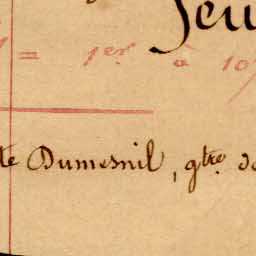 = 1er à 10
te Dumesnil, gtre de